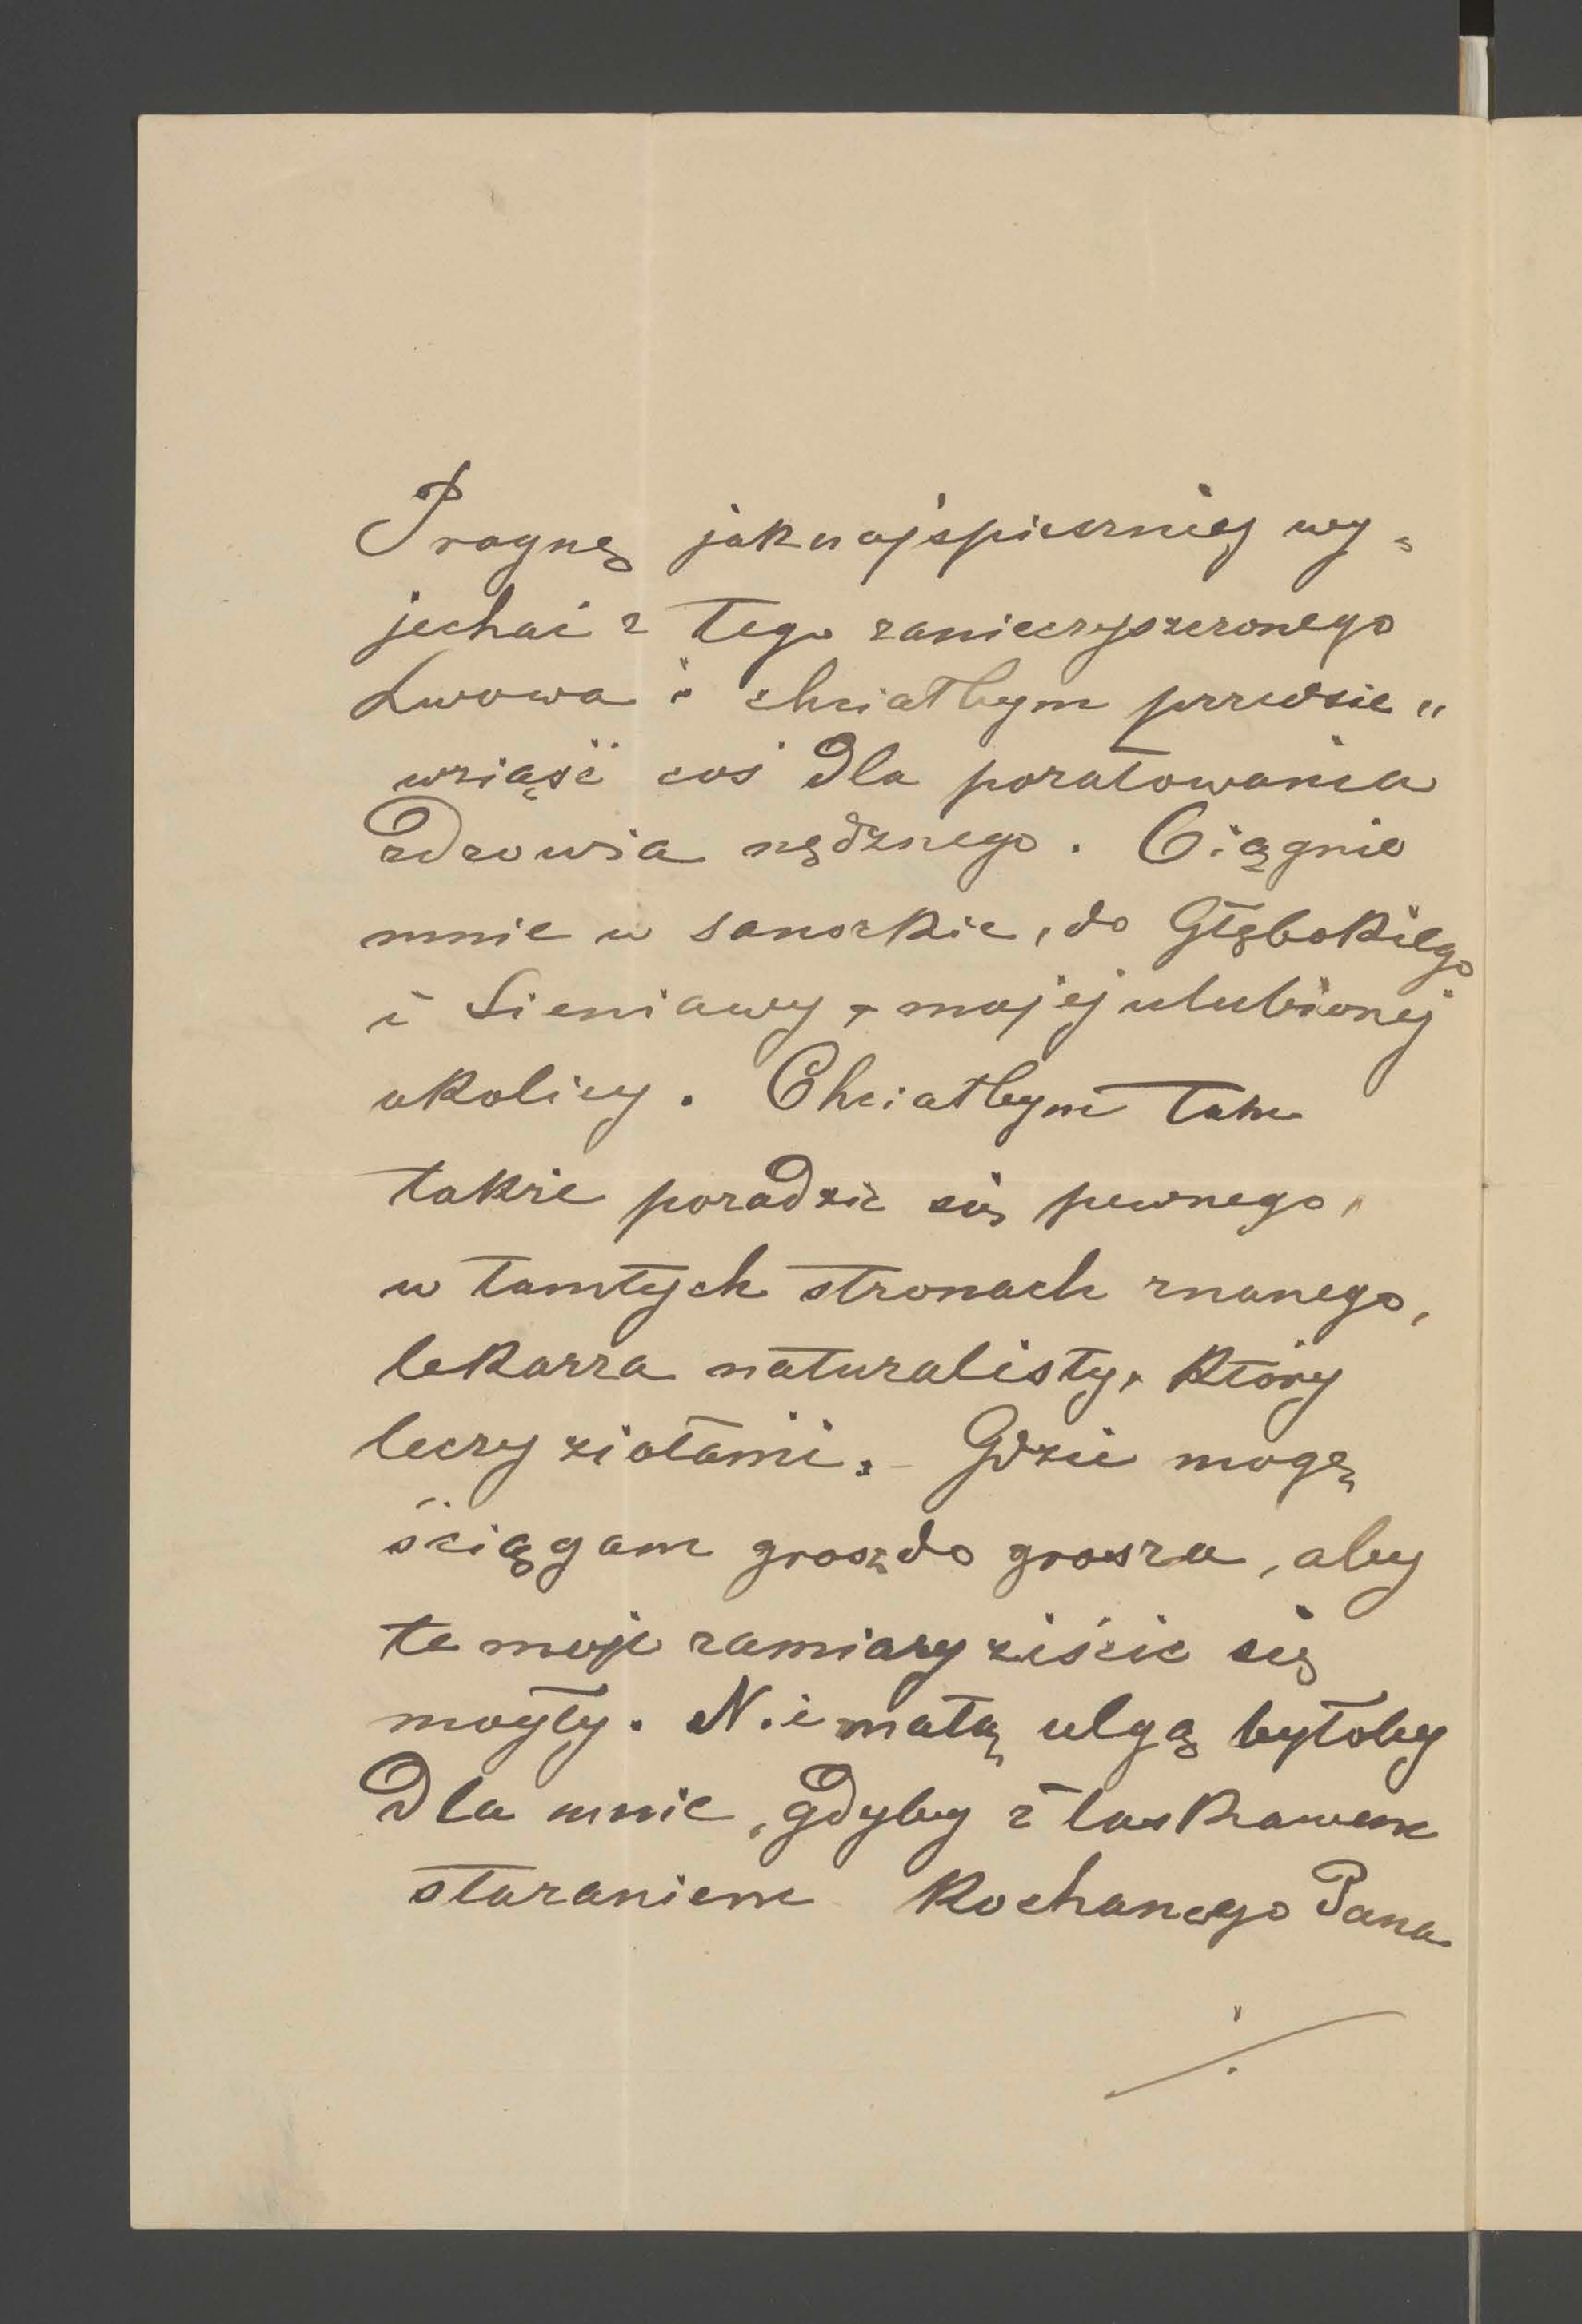 Pragnę jaknajspieszniej wy=
jechać z tego zanieczyszczonego
Lwowa i chciałbym przedsię"
wziąść coś dla poratowania
zdrowia nędznego. Ciągnie
mnie w sanockie, do Głębokiego
i Sieniawy, mojej ulubionej
okolicy. Chciałbym tam
także poradzić się pewnego,
w tamtych stronach znanego,
lekarza naturalisty, który
leczy ziołami. - Gdzie mogę
ściągam grosz do grosza, aby
te moje zamiary ziścić się
mogły. Niemałą ulgą byłoby
dla mnie, gdyby z łaskawem
staraniem Kochanego Pana
./.